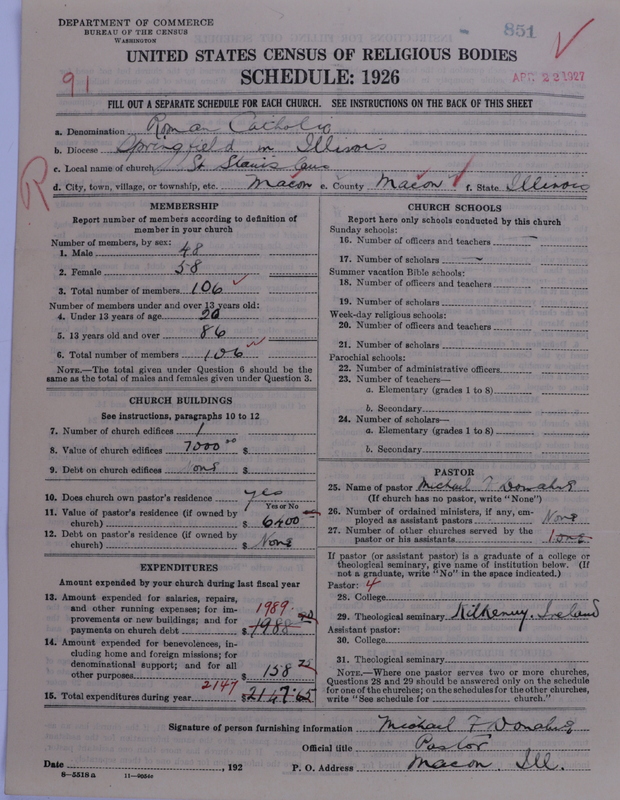 DEPARTMENT OF COMMERCE
BUREAU OF THE CENSUS
WASHINGTON
851
UNITED STATES CENSUS OF RELIGIOUS BODIES
SCHEDULE: 1926
91
APR 22 1927
FILL OUT A SEPARATE SCHEDULE FOR EACH CHURCH. SEE INSTRUCTIONS ON THE BACK OF THIS SHEET
a. Denomination Roman Catholic
b. Diocese Springfield in Illinois
c. Local name of church St. Stanis laus
R
d. City, town, village, or township, etc. Macon e. County Macon f. State Illinois
MEMBERSHIP
Report number of members according to definition of member in your church
Number of members, by sex:
1. Male 48
2. Female 58
3. Total number of members 106
Number of members under and over 13 years old:
4. Under 13 years of age 20
5. 13 years old and over 86
6. Total number of members 106
NOTE.—The total given under Question 6 should be the same as the total of males and females given under Question 3.
CHURCH BUILDINGS
See instructions, paragraphs 10 to 12
7. Number of church edifices 1
8. Value of church edifices $ 7000 00
9. Debt on church edifices None $
10. Does church own pastor's residence yes
Yes or No
11. Value of pastor's residence (if owned by church) $ 6400
12. Debt on pastor's residence (if owned by church) $ None
EXPENDITURES
Amount expended by your church during last fiscal year
13. Amount expended for salaries, repairs, and other running expenses; for improvements or new buildings; and for payments on church debt $ 1988
1989
14. Amount expended for benevolences, including home and foreign missions; for denominational support; and for all other purposes $ 158
15. Total expenditures during year $ 2147.65
2147
CHURCH SCHOOLS
Report here only schools conducted by this church
Sunday schools:
16. Number of officers and teachers —
17. Number of scholars —
Summer vacation Bible schools:
18. Number of officers and teachers
19. Number of scholars
Week-day religious schools:
20. Number of officers and teachers
21. Number of scholars
Parochial schools:
22. Number of administrative officers
23. Number of teachers—
a. Elementary (grades 1 to 8)
b. Secondary
24. Number of scholars—
a. Elementary (grades 1 to 8)
b. Secondary
PASTOR
25. Name of pastor Michael F Donahue
(If church has no pastor, write "None")
26. Number of ordained ministers, if any, employed as assistant pastors None
27. Number of other churches served by the pastor or his assistants
If pastor (or assistant pastor) is a graduate of a college or theological seminary, give name of institution below. (If not a graduate, write "No" in the space indicated.)
Pastor: 4
28. College
29. Theological seminary Kilkenny, Ireland
Assistant pastor:
30. College
31. Theological seminary
NOTE.—Where one pastor serves two or more churches, Questions 28 and 29 should be answered only on the schedule for one of the churches; on the schedules for the other churches, write "See schedule for church."
Signature of person furnishing information Michael F Donahue
Official title Pastor
Date , 192 P. O. Address Macon Ill.
8—5518a 11—9054c